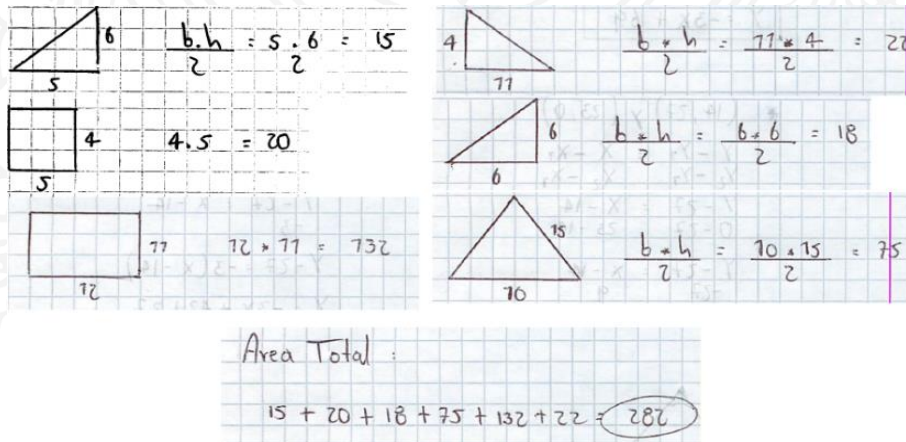 6
b.h / 2 = 5 . 6 / 2 = 15
5
4
4.5 = 20
5
11
12 * 11 = 132
12
4
b * h / 2 = 11 * 4 / 2 = 22
11
6
b * h / 2 = 6 * 6 / 2 = 18
6
15
b * h / 2 = 10 * 15 / 2 = 75
10
Area Total :
15 + 20 + 18 + 75 + 132 + 22 = 282